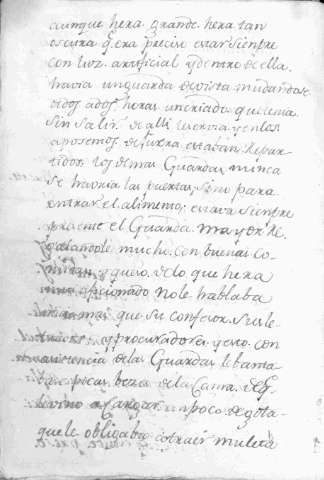 aunque hera grande hera tan
oscura q. era preciso estar siempre
con luz artificial y dentro de ella,
havia un guarda de vista mudandose
de dos a dos horas un criado que tenia
sin salir de alli
aposentos de fuera estaban repar
tidos los demas Guardas nunca
se habria las puertas, sino para
entrar el alimento; estava siempre
presente el Guarda mayor Re
galandole mucho con buenas co
midas, y que lo que hera
muy aficionado no le hablaba
mas que su confesor, su le
trado y procuradores y eso con
asistencia de las Guardas
bas pocas beces de la Cama
le vino a cargar un poco de gota
que le obligaba a traer muleta